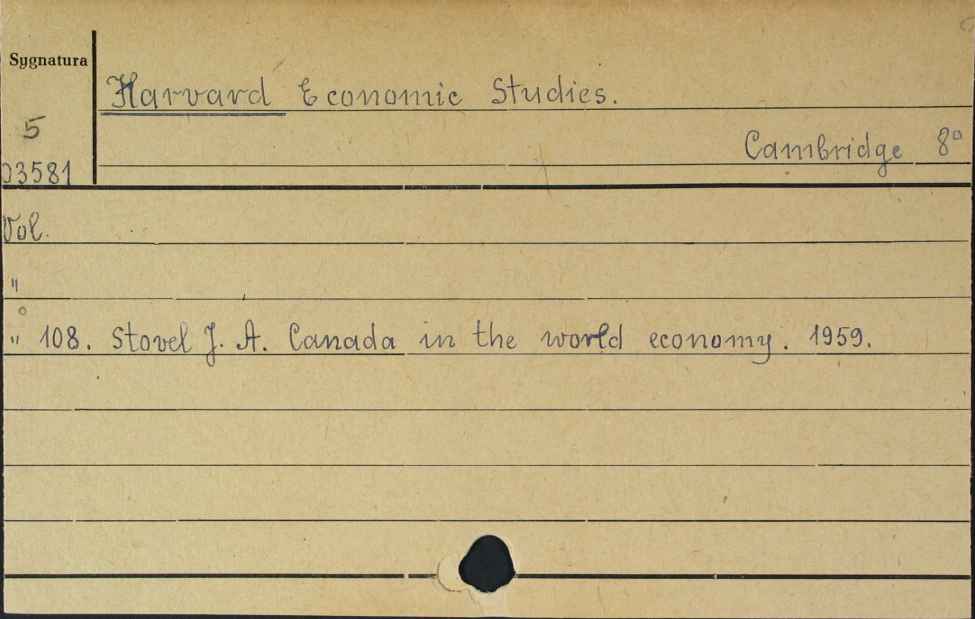 Sygnatura
Harvard Economic Studies.
5
Cambridge 8°
03581
Vol.
"
" 108. Stovel J. A. Canada in the world economy. 1959.